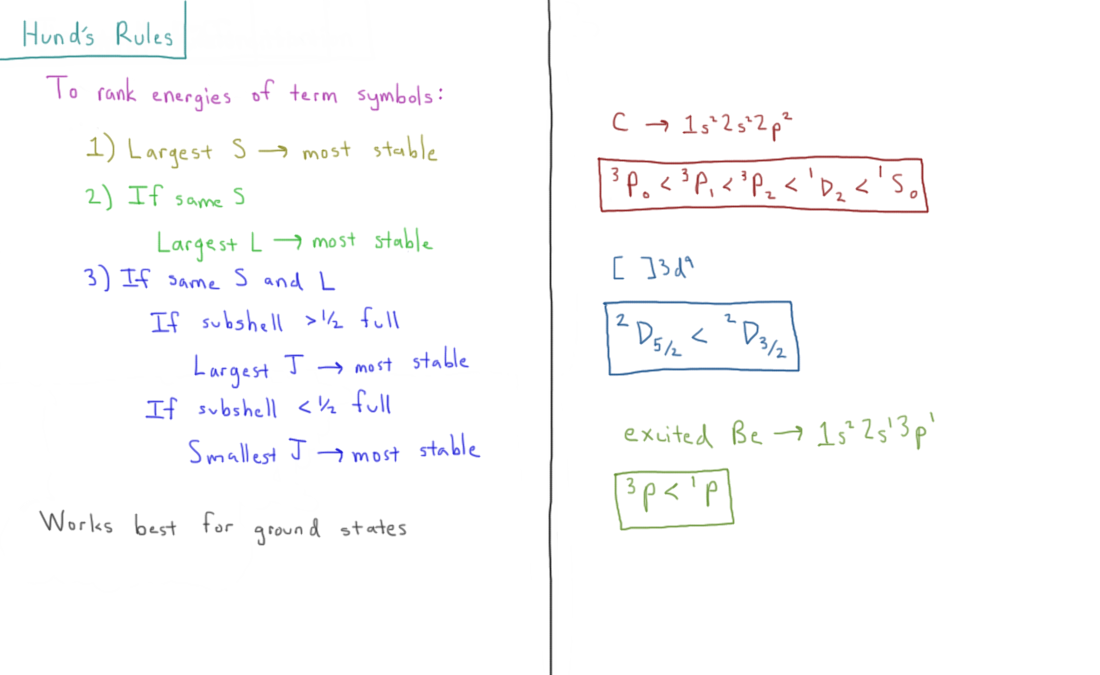 Hund's Rules
To rank energies of term symbols:
1) Largest S → most stable
2) If same S
Largest L → most stable
3) If same S and L
If subshell >1/2 full
Largest J → most stable
If subshell <1/2 full
Smallest J → most stable
Works best for ground states
C → 1s²2s²2p²
³P₀ < ³P₁ < ³P₂ < ¹D₂ < ¹S₀
[ ]3d⁹
²D₅/₂ < ²D₃/₂
excited Be → 1s²2s¹3p¹
³P < ¹P